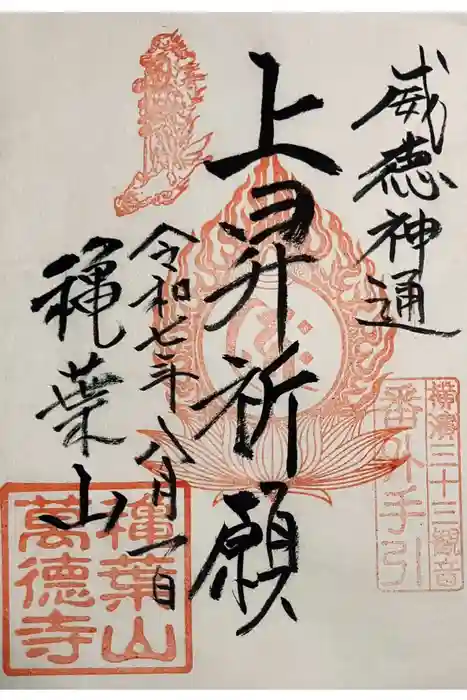 威徳神通
上昇祈願
令和七年八月一日
穐葉山
横濱三十三觀音
番外手引
穐葉山
萬徳寺